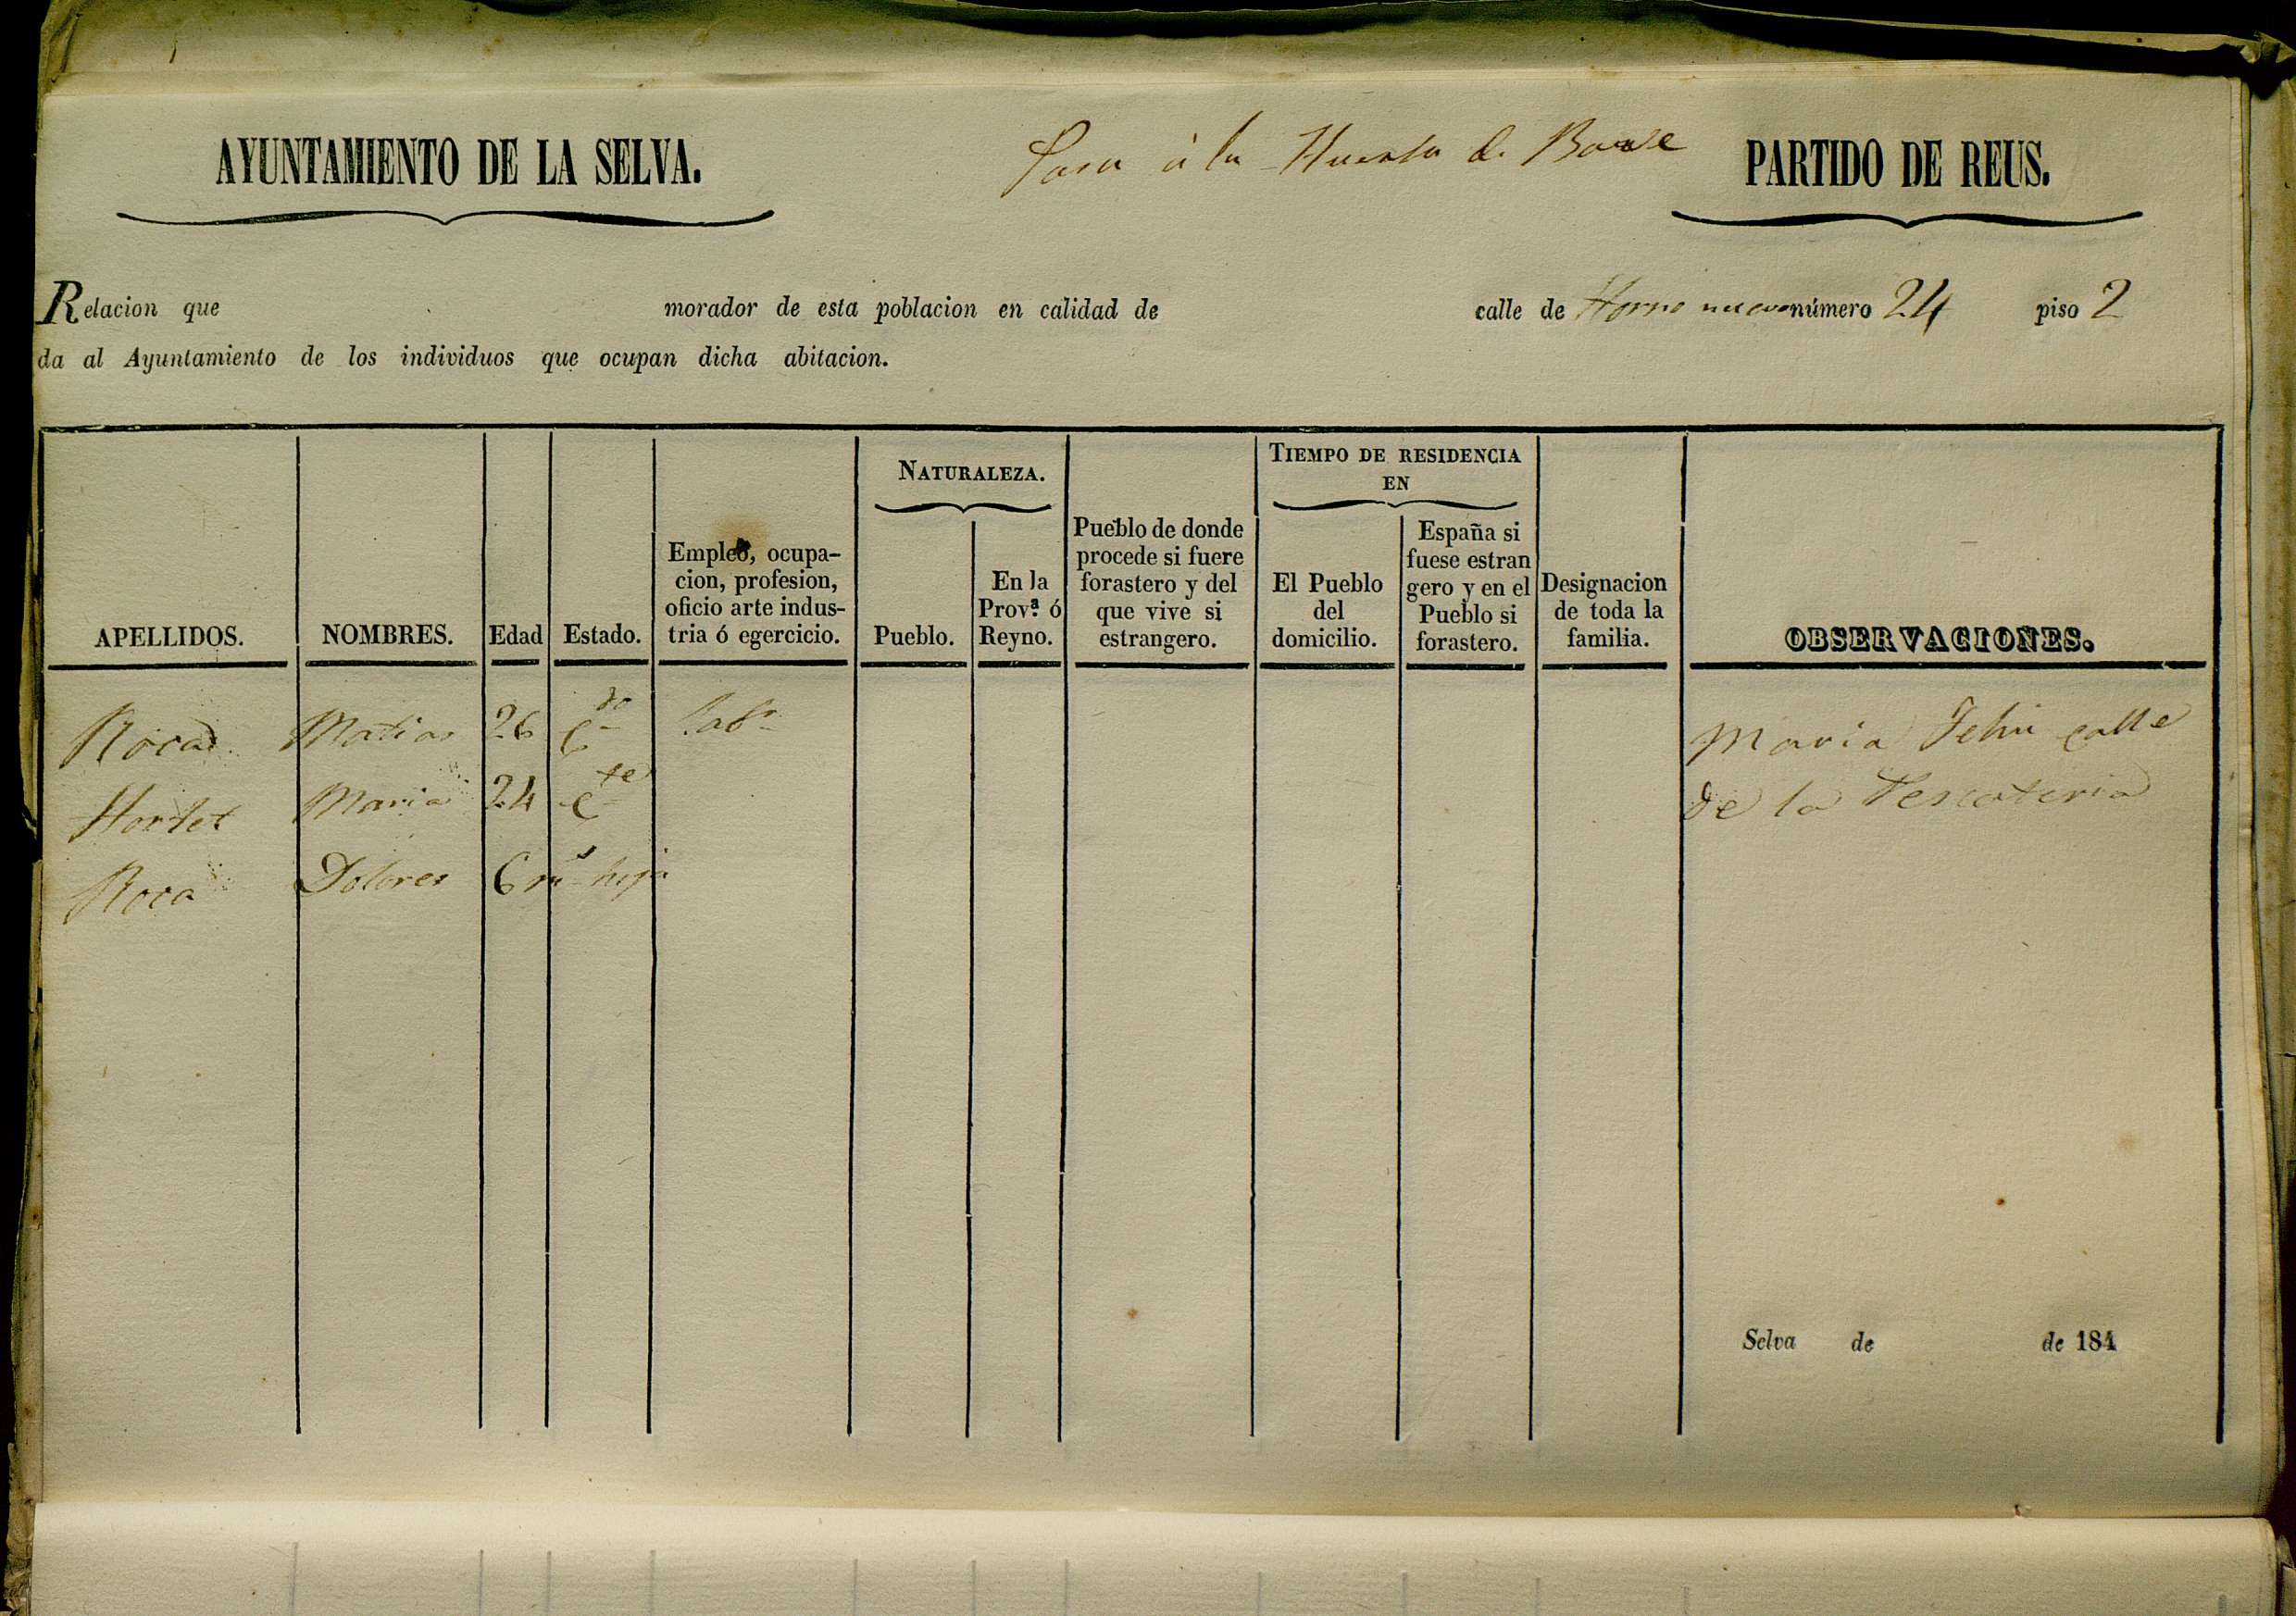 AYUNTAMIENTO DE LA SELVA.
Pasa à la Huerta de
PARTIDO DE REUS.
Relacion que morador de esta poblacion en calidad de calle de Horno nuevo número 24 piso 2
da al Ayuntamiento de los individuos que ocupan dicha abitacion.
APELLIDOS.
NOMBRES.
Edad
Estado.
Empleo, ocupa-
cion, profesion,
oficio arte indus-
tria ó egercicio.
NATURALEZA.
Pueblo.
En la
Prov.ª ó
Reyno.
Pueblo de donde
procede si fuere
forastero y del
que vive si
estrangero.
TIEMPO DE RESIDENCIA
EN
El Pueblo
del
domicilio.
España si
fuese estran
gero y en el
Pueblo si
forastero.
Designacion
de toda la
familia.
OBSERVACIONES.
Roca Matias 26 C.do Lab.r
Hortet Maria 24 C.te
Roca Dolores 6 m.s hija
Maria Feliu calle
de la Pescateria
Selva de de 184